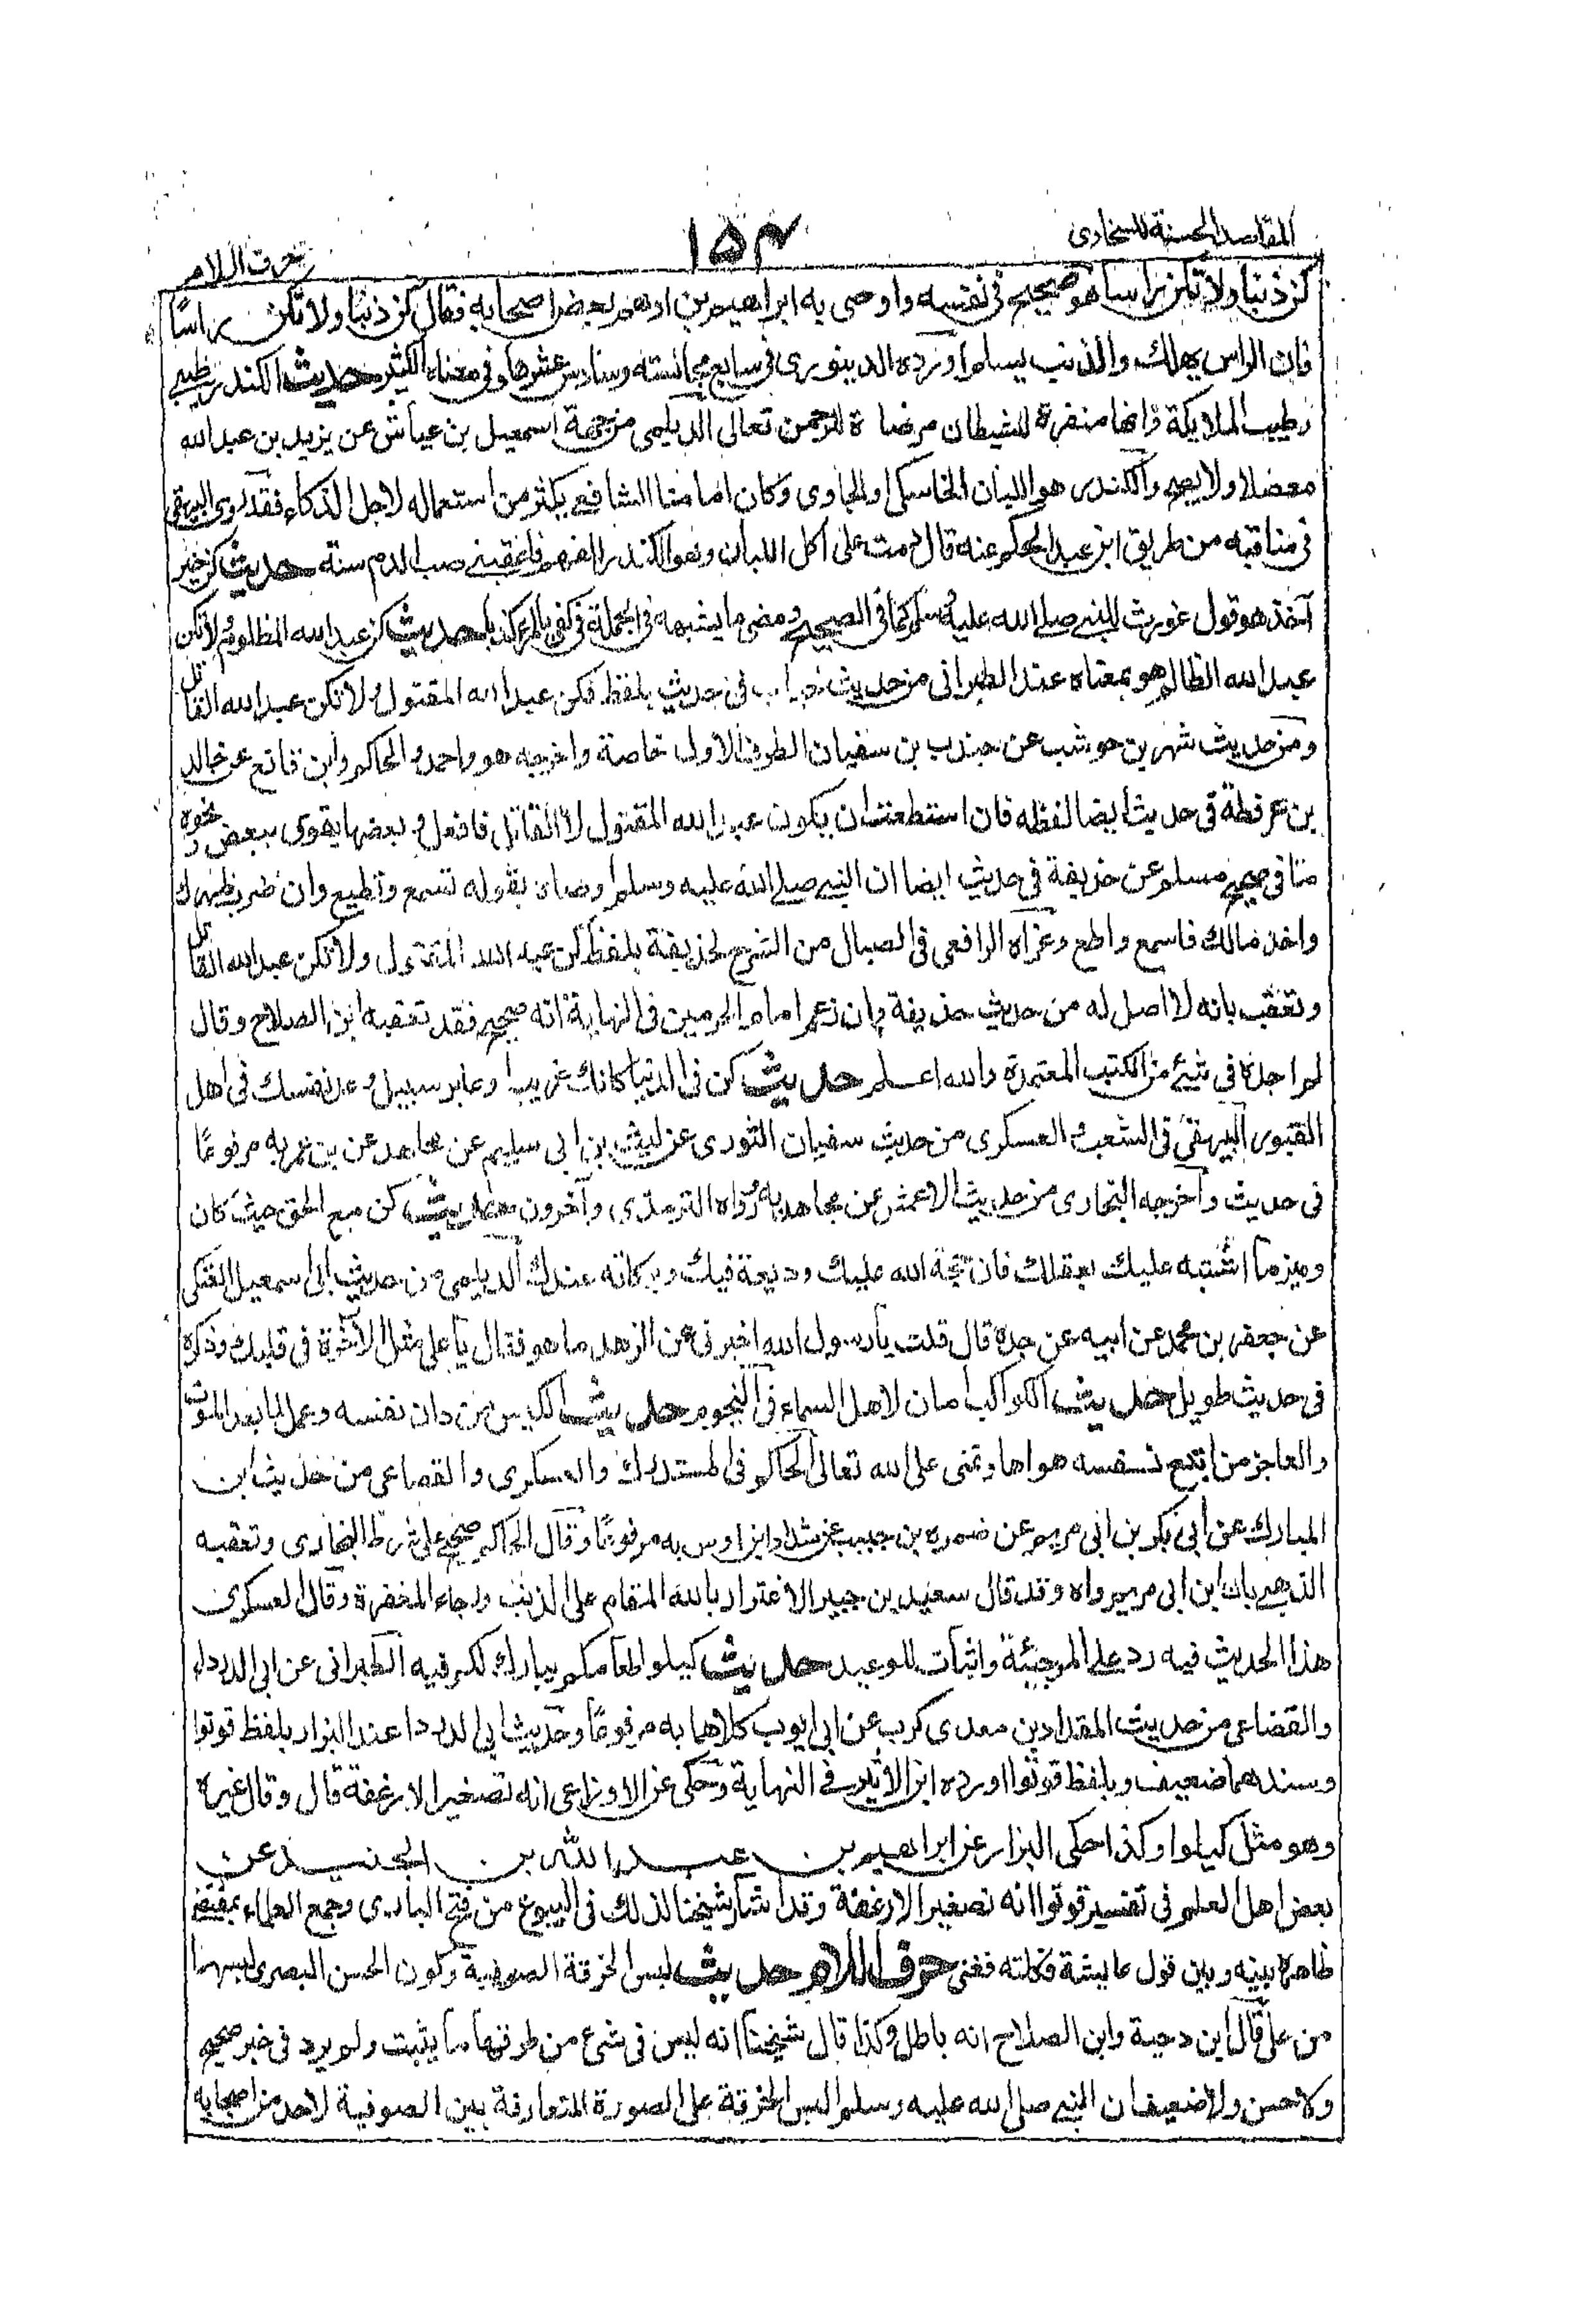 المقاصد الحسنة للسخاوى
١٥٤
حرف اللام
كن ذنبا ولا تكن راسا هو صحيح فى نفسه واوصى به ابراهيم بن ادهم بعض اصحابه فقال كن ذنبا ولا تكن راسًا
فان الراس يهلك والذنب يسلم اورده الدينورى فى سابع مجالسته وسادس عشرها وفى معناه الكثير حديث الكندر طيبى
وطيب الملايكة وانها منفرة للشيطان مرضاة للرحمن تعالى الديلمى من جهة اسمعيل بن عياش عن يزيد بن عبد الله
معضلا ولا يصح والكندر هو اللبان الخاسكى او الجاوى وكان امامنا الشافعى يكثر من استعماله لاجل الذكاء فقد روى البيهقى
فى مناقبه من طريق ابن عبد الحكم عنه قال دمت على اكل اللبان وهو الكندر للفهم فاعقبنى صب الدم سنة حديث كن خير
آخذ هو قول غورث للنبى صلى الله عليه وسلم كما فى الصحيح ومضى ما يشبهه فى الجملة فى كفى بالمرء كذبا حديث كن عبد الله المظلوم ولا تكن
عبد الله الظالم هو بمعناه عند الطبرانى من حديث خباب فى حديث بلفظ فكن عبد الله المقتول ولا تكن عبد الله القاتل
ومن حديث شهر بن حوشب عن جندب بن سفيان الطرف الاول خاصة واخرجه هو واحمد والحاكم وابن قانع عن خالد
بن عرفطة فى حديث ايضا لفظه فان استطعت ان يكون عبد الله المقتول لا القاتل فافعل وبعضها يقوى ببعض ونحوه
منا فى صحيح مسلم عن حذيفة فى حديث ايضا ان النبى صلى الله عليه وسلم وصاه بقوله تسمع وتطيع وان ضرب ظهرك
واخذ مالك فاسمع واطع وعزاه الرافعى فى الصيال من الشرح لحذيفة بلفظ كن عبد الله المقتول ولا تكن عبد الله القاتل
وتعقب بانه لا اصل له من حديث حذيفة وان زعم امام الحرمين فى النهاية انه صحيح فقد تعقبه ابن الصلاح وقال
لم اجده فى شئ من الكتب المعتمدة والله اعلم حديث كن فى الدنيا كانك غريب او عابر سبيل وعد نفسك فى اهل
القبور البيهقى فى الشعب والعسكرى من حديث سفيان الثورى عن ليث بن ابى سليم عن مجاهد عن بن عمر به مرفوعًا
فى حديث واخرجه البخارى من حديث الاعمش عن مجاهد به ورواه الترمذى وآخرون حديث كن مع الحق حيث كان
وميز ما اشتبه عليك بعقلك فان حجة الله عليك وديعة فيك وبركاته عندك الديلمى من حديث ابى اسمعيل العتكى
عن جعفر بن محمد عن ابيه عن جده قال قلت يا رسول الله اخبرنى عن الزهد ما هو فقال يا على مثل الآخرة فى قلبك وذكره
فى حديث طويل حديث الكواكب امان لاهل السماء فى النجوم حديث الكيس من دان نفسه وعمل لما بعد الموت
والعاجز من اتبع نفسه هواها وتمنى على الله تعالى الحاكم فى المستدرك والعسكرى والقضاعى من حديث ابن
المبارك عن ابى بكر بن ابى مريم عن ضمره بن حبيب عن شداد ابن اوس به مرفوعًا وقال الحاكم صحيح على شرط البخارى وتعقبه
الذهبى بان ابن ابى مريم واه وقد قال سعيد بن جبير الاغترار بالله المقام على الذنب ورجاء المغفرة وقال العسكرى
هذا الحديث فيه رد على المرجئة واثبات للوعيد حديث كيلوا طعامكم يبارك لكم فيه الطبرانى عن ابى الدرداء
والقضاعى من حديث المقدام بن معدى كرب عن ابى ايوب كلاهما به مرفوعًا وحديث ابى الدردا عند البزار بلفظ قوتوا
وسندهما ضعيف وبلفظ قوتوا اورده ابن الاثير فى النهاية وحكى عن الاوزاعى انه تصغير الارغفة قال وقال غيره
وهو مثل كيلوا وكذا حكى البزار عن ابراهيم بن عبد الله بن الجنيد عن
بعض اهل العلم فى تفسير قوتوا انه تصغير الارغفة وقد اشار شيخنا لذلك فى البيوع من فتح البارى وجمع العلماء بمقتضى
ظاهره بينه وبين قول عايشة فكلته ففنى حرف اللام حديث لبس الخرقة الصوفية وكون الحسن البصرى لبسها
من على قال ابن دحية وابن الصلاح انه باطل وكذا قال شيخنا انه ليس فى شئ من طرقها ما يثبت ولم يرد فى خبر صحيح
ولا حسن ولا ضعيف ان النبى صلى الله عليه وسلم البس الخرقة على الصورة المتعارفة بين الصوفية لاحد من اصحابه